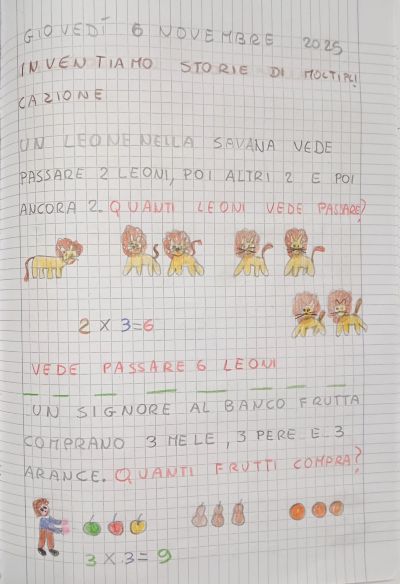 GIOVEDÌ 6 NOVEMBRE 2025
INVENTIAMO STORIE DI MOLTIPLI
CAZIONE
UN LEONE NELLA SAVANA VEDE
PASSARE 2 LEONI, POI ALTRI 2 E POI
ANCORA 2. QUANTI LEONI VEDE PASSARE?
2 X 3=6
VEDE PASSARE 6 LEONI
UN SIGNORE AL BANCO FRUTTA
COMPRANO 3 MELE, 3 PERE E 3
ARANCE. QUANTI FRUTTI COMPRA?
3 X 3= 9